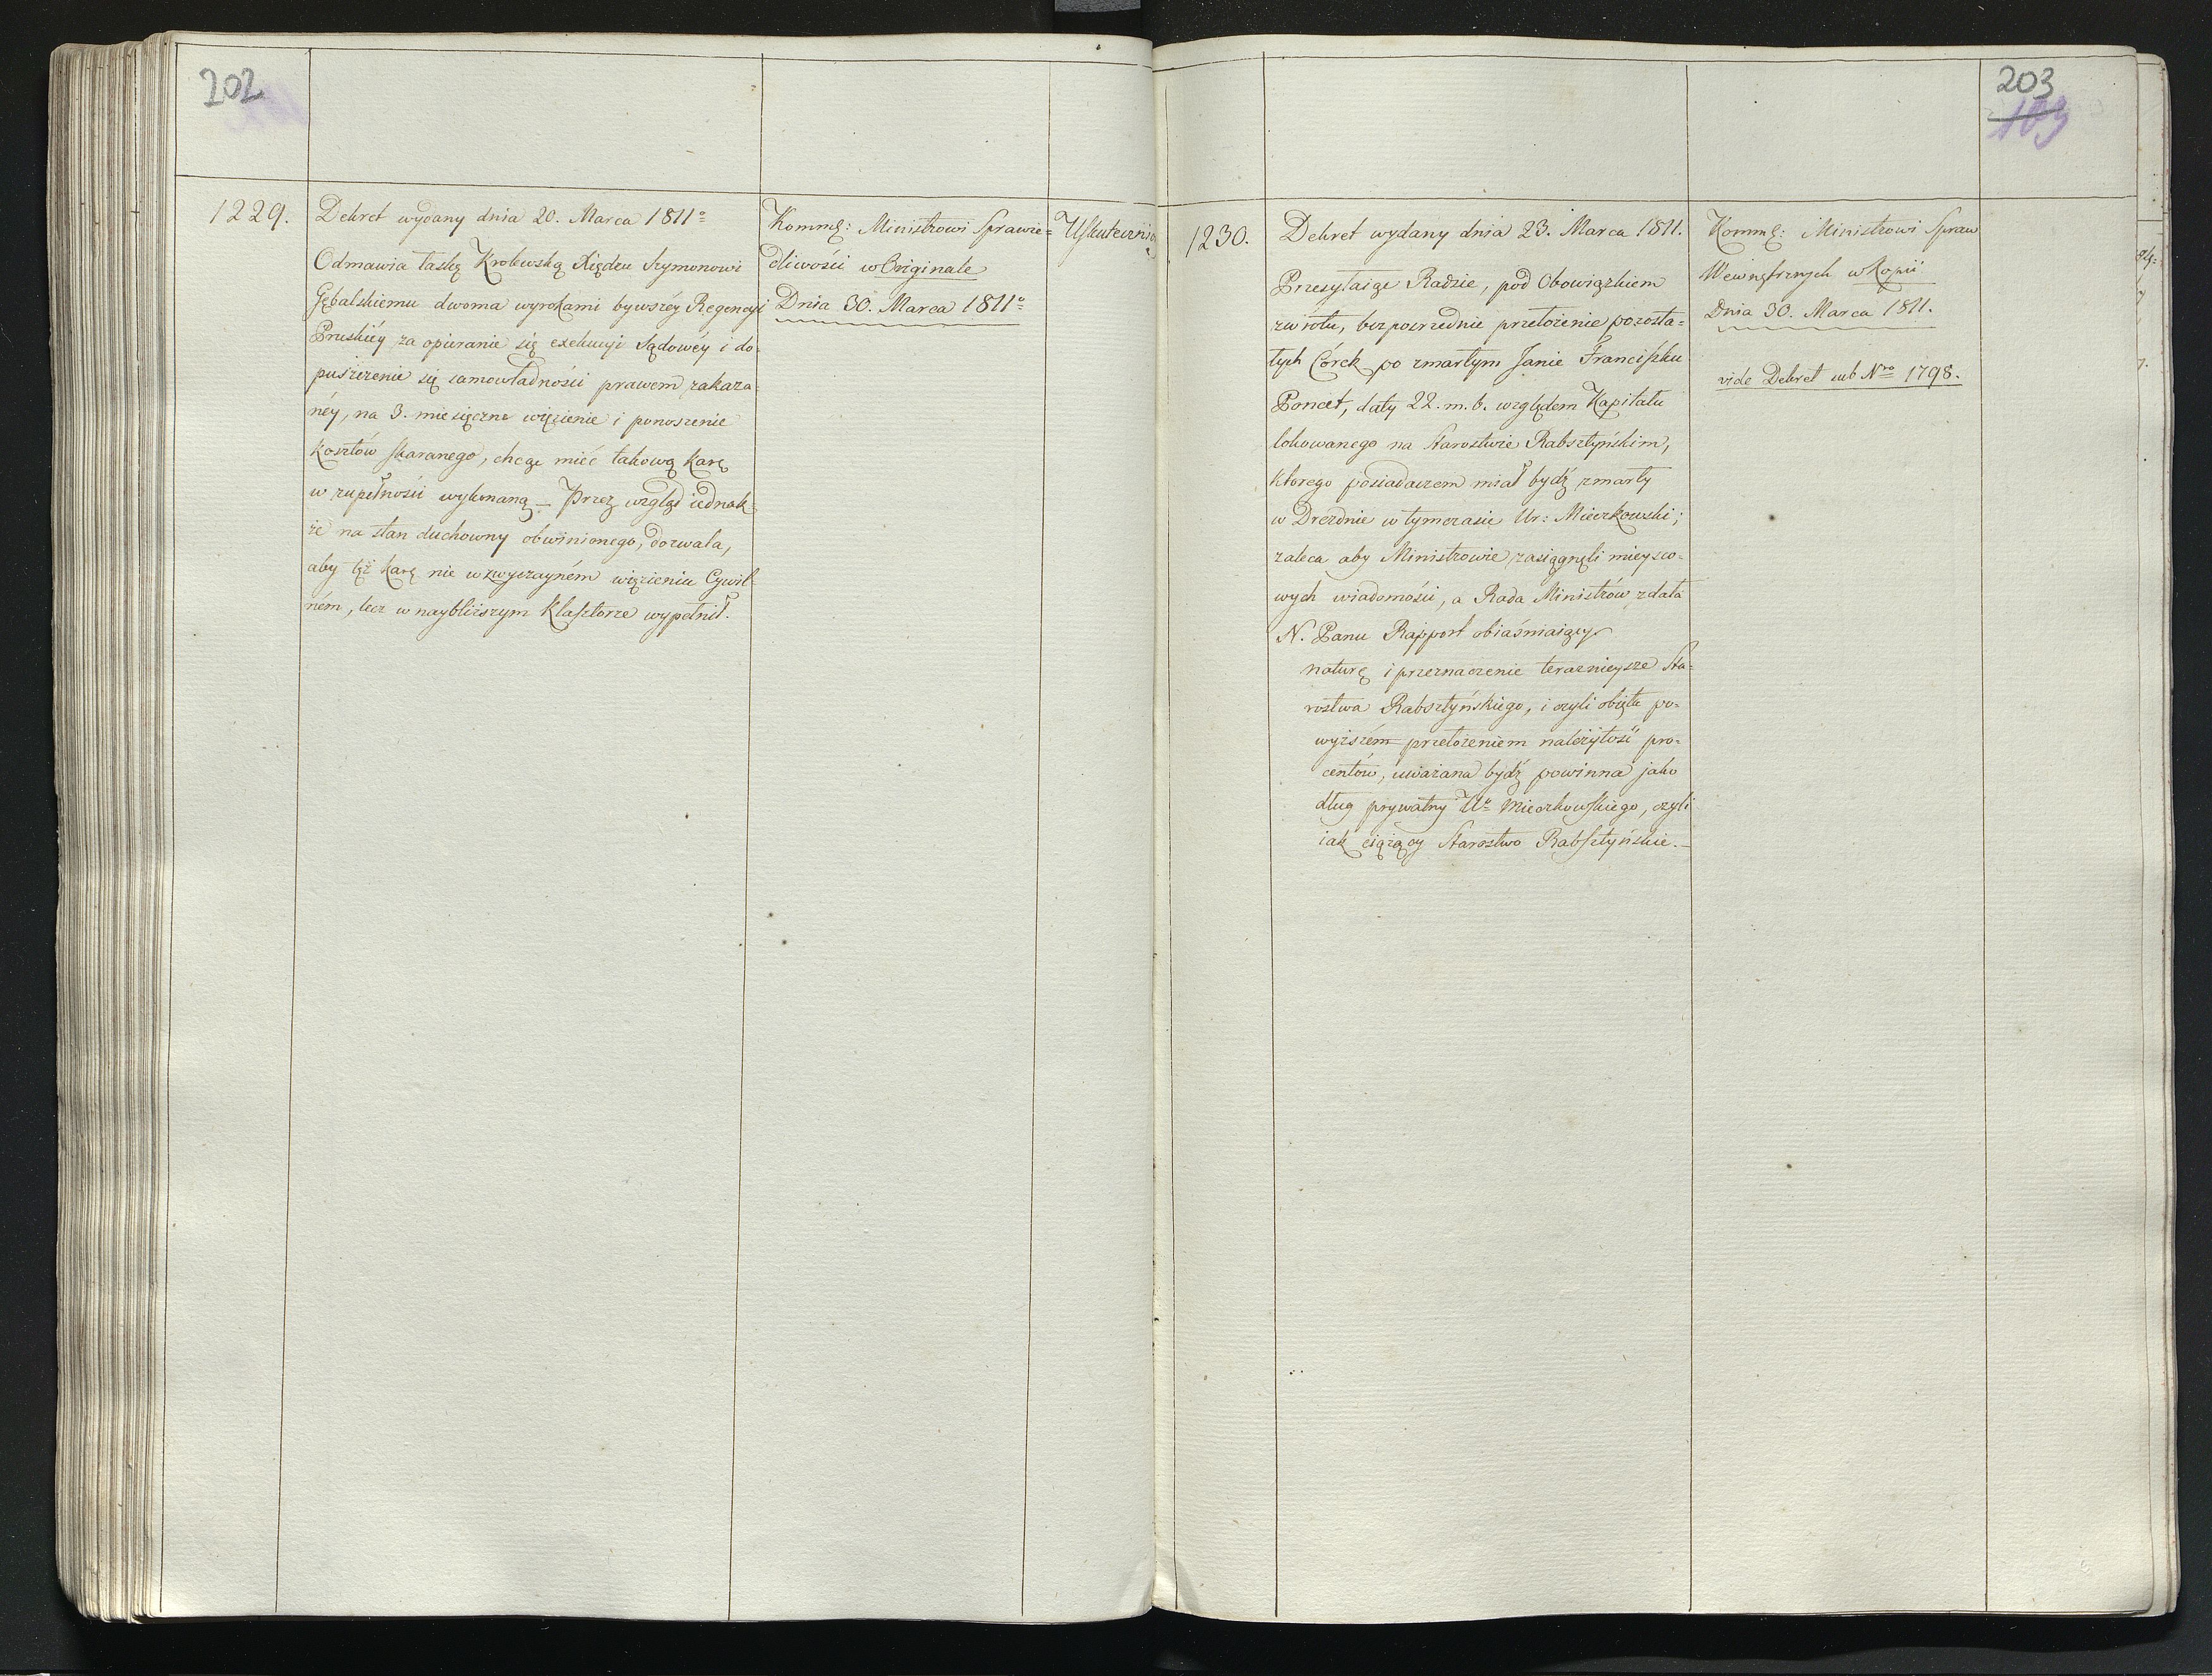 202
1229.
Dekret wydany dnia 20. Marca 1811º
Odmawia łaskę Krolewską Xiędzu Szymonowi
Gębalskiemu dwoma wyrokami bywszéy Regencyi
Pruskiéy za opieranie się exekucyi Sądowéy i do-
puszczenie się samowładności prawem zakaza-
néy, na 3. miesięczne więzienie i ponoszenie
kosztów skaranego, chcąc mieć takową karę
w zupełności wykonaną – Przez wzgląd iednak-
że na stan duchowny obwinionego, dozwala,
aby tęż karę nie w zwyczayném więzieniu Cywil-
ném, lecz w naybliższym Klasztorze wypełnił.
Kommę: Ministrowi Sprawie=
dliwości w Originale
Dnia 30. Marca 1811º
203
103
1230.
Dekret wydany dnia 23. Marca 1811.
Przesyłaiąc Radzie, pod Obowiązkiem
zwrotu, bezpośrednie przełożenie pozosta=
łych Córek po zmarłym Janie Franciszku
Poncet, daty 22. m. b. względem Kapitału
lokowanego na Starostwie Rabsztyńskim,
którego posiadaczem miał bydź zmarły
w Dreznie w tymczasie Ur: Mieczkowski;
zaleca aby Ministrowie zasiągnęli mieysco-
wych wiadomości, a Rada Ministrów zdała
N. Panu Rapport obiaśniaiący
naturę i przeznaczenie teraznieysze Sta=
rostwa Rabsztyńskiego, i czyli obięta po-
wyższém przełożeniem należytość pro-
centów, uważana bydź powinna jako
dług prywatny Uº Mieczkowskiego, czyli
iak ciążący Starostwo Rabsztyńskie. –
Kommę: Ministrowi Spraw
Wewnętrznych w Kopii
Dnia 30. Marca 1811.
vide Dekret sub Nro 1798.